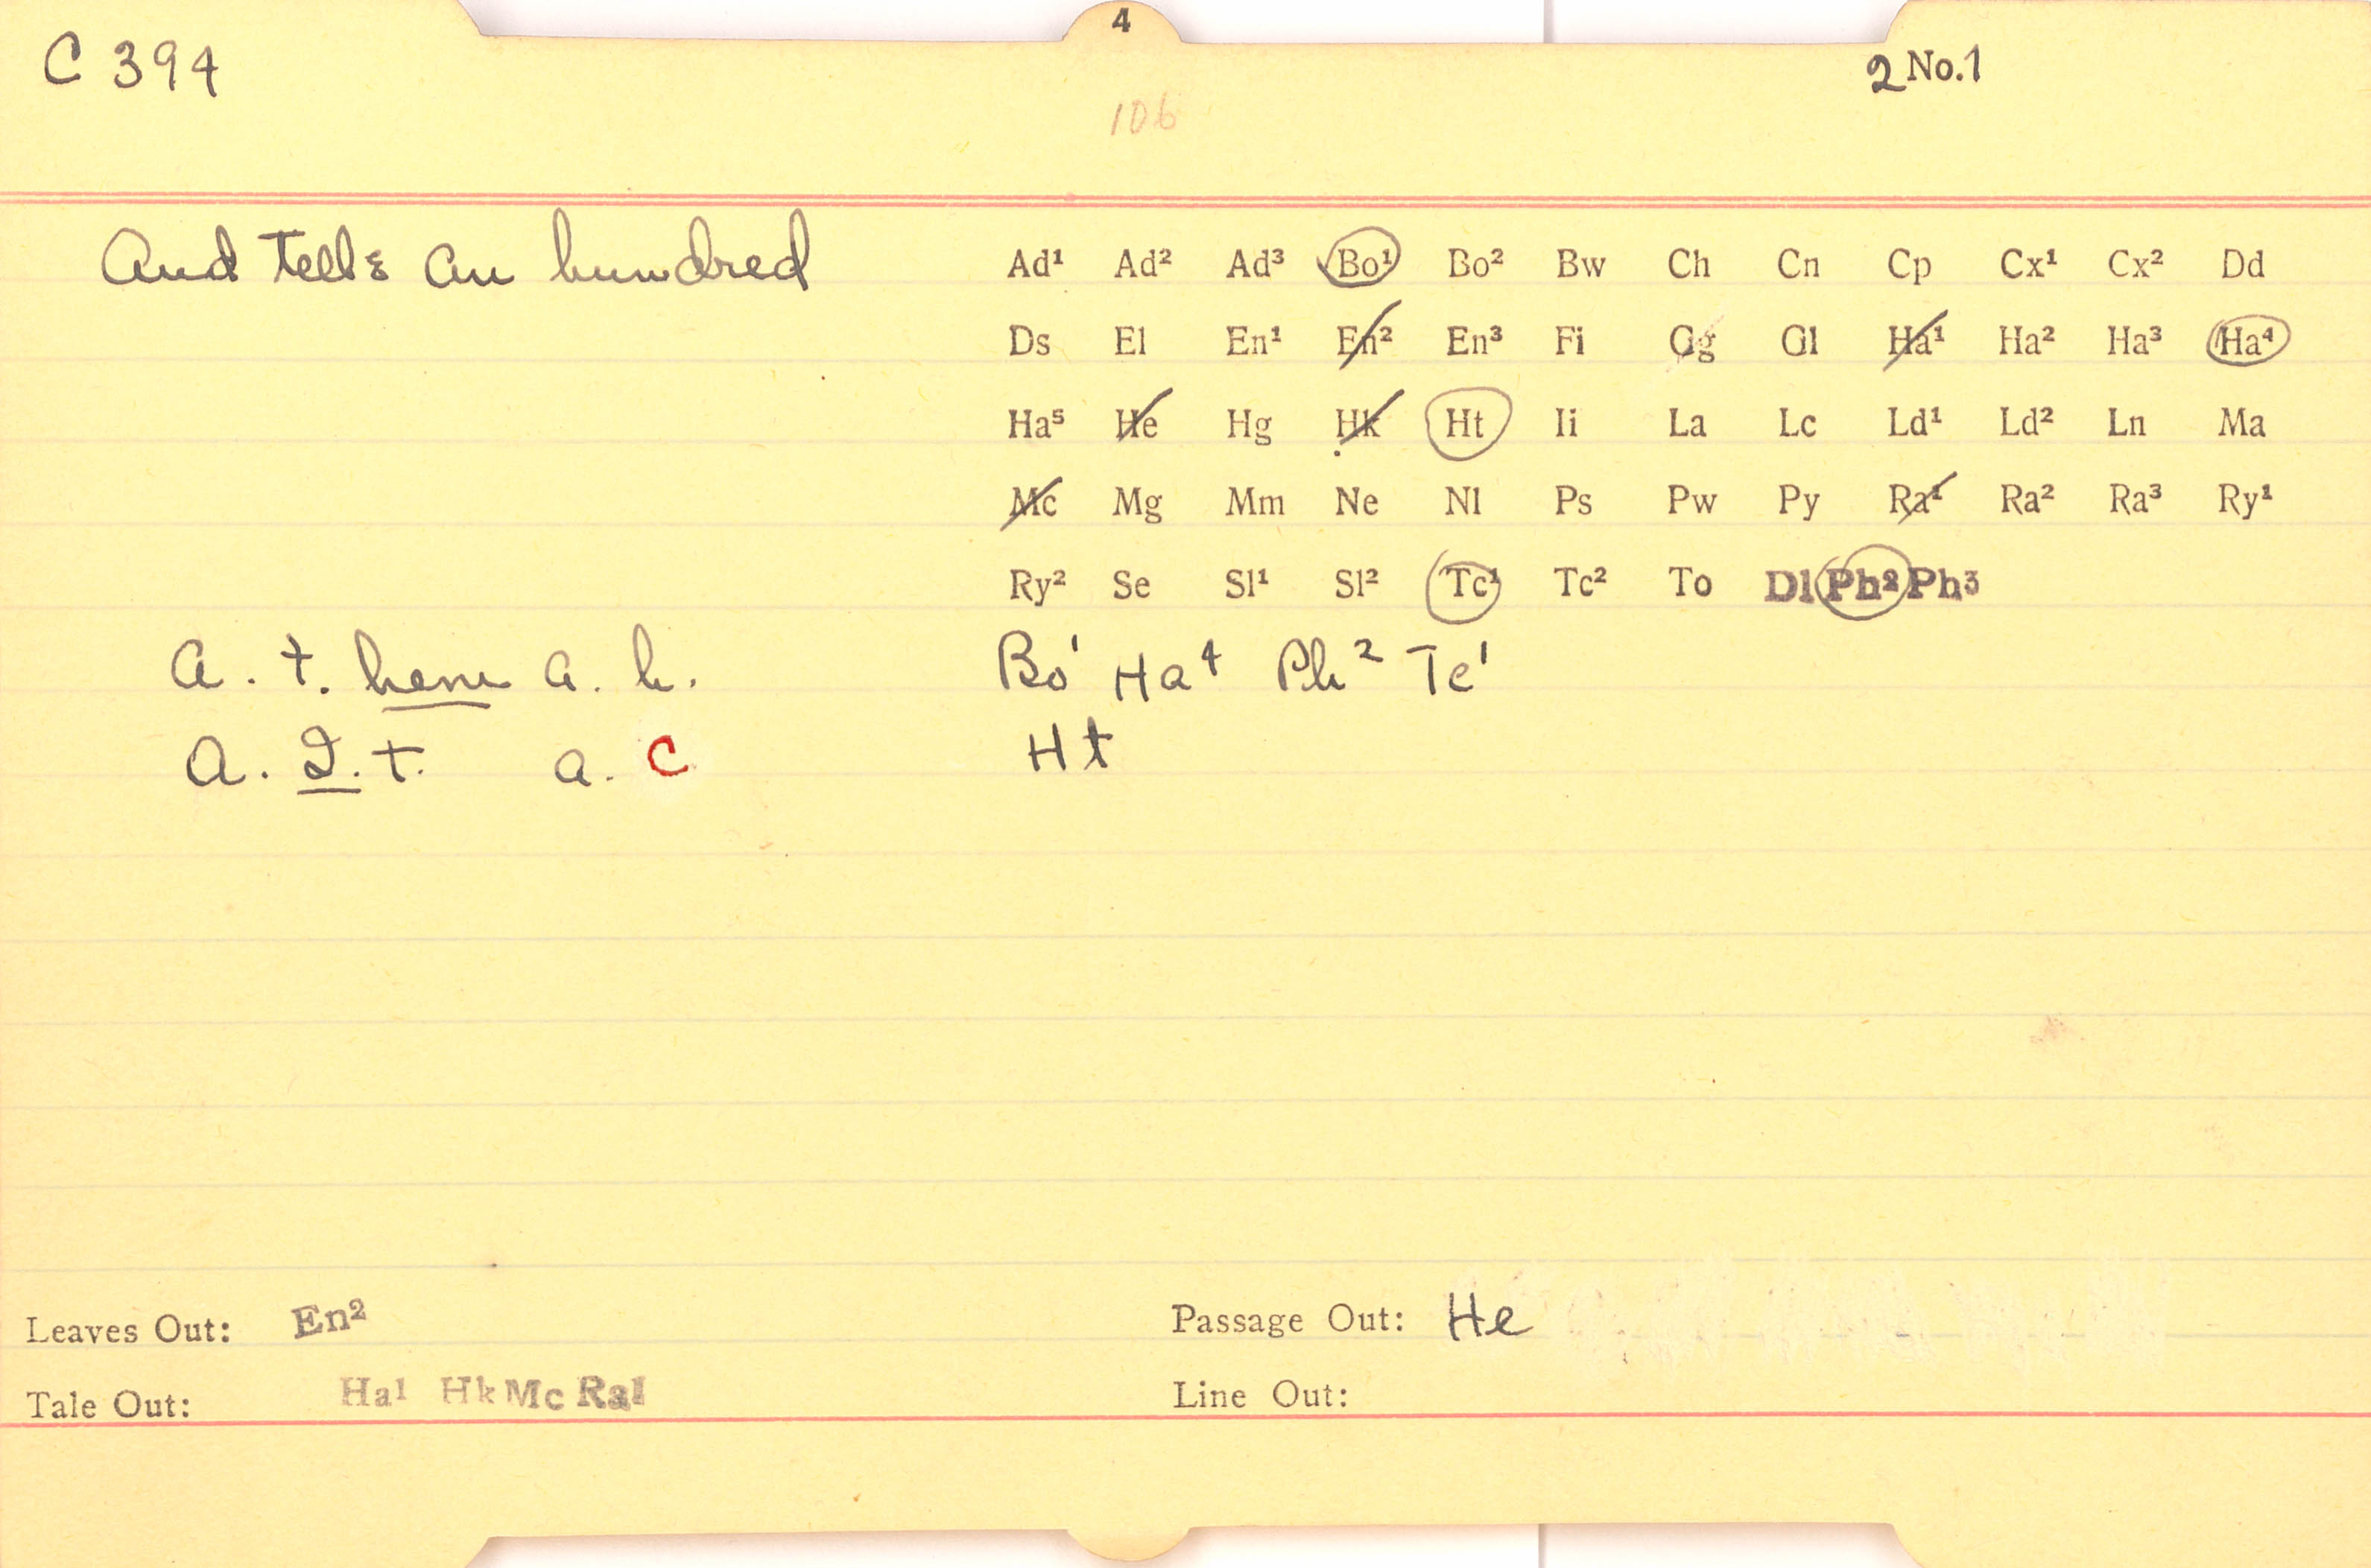 4
C 394
2 No.1
106
And tell an hundred
Ad¹ Ad² Ad³ Bo¹ Bo² Bw Ch Cn Cp Cx¹ Cx² Dd
Ds El En¹ En² En³ Fi Gg Gl Ha¹ Ha² Ha³ Ha⁴
Ha⁵ He Hg Hk Ht Ii La Lc Ld¹ Ld² Ln Ma
Mc Mg Mm Ne Nl Ps Pw Py Ra¹ Ra² Ra³ Ry¹
Ry² Se Sl¹ Sl² Tc¹ Tc² To Dl Ph² Ph³
a. t. hem a. h. Bo¹ Ha⁴ Ph² Tc¹
a. I. t. a. C Ht
Leaves Out: En² Passage Out: He
Tale Out: Ha1 Hk Mc Ra1 Line Out: